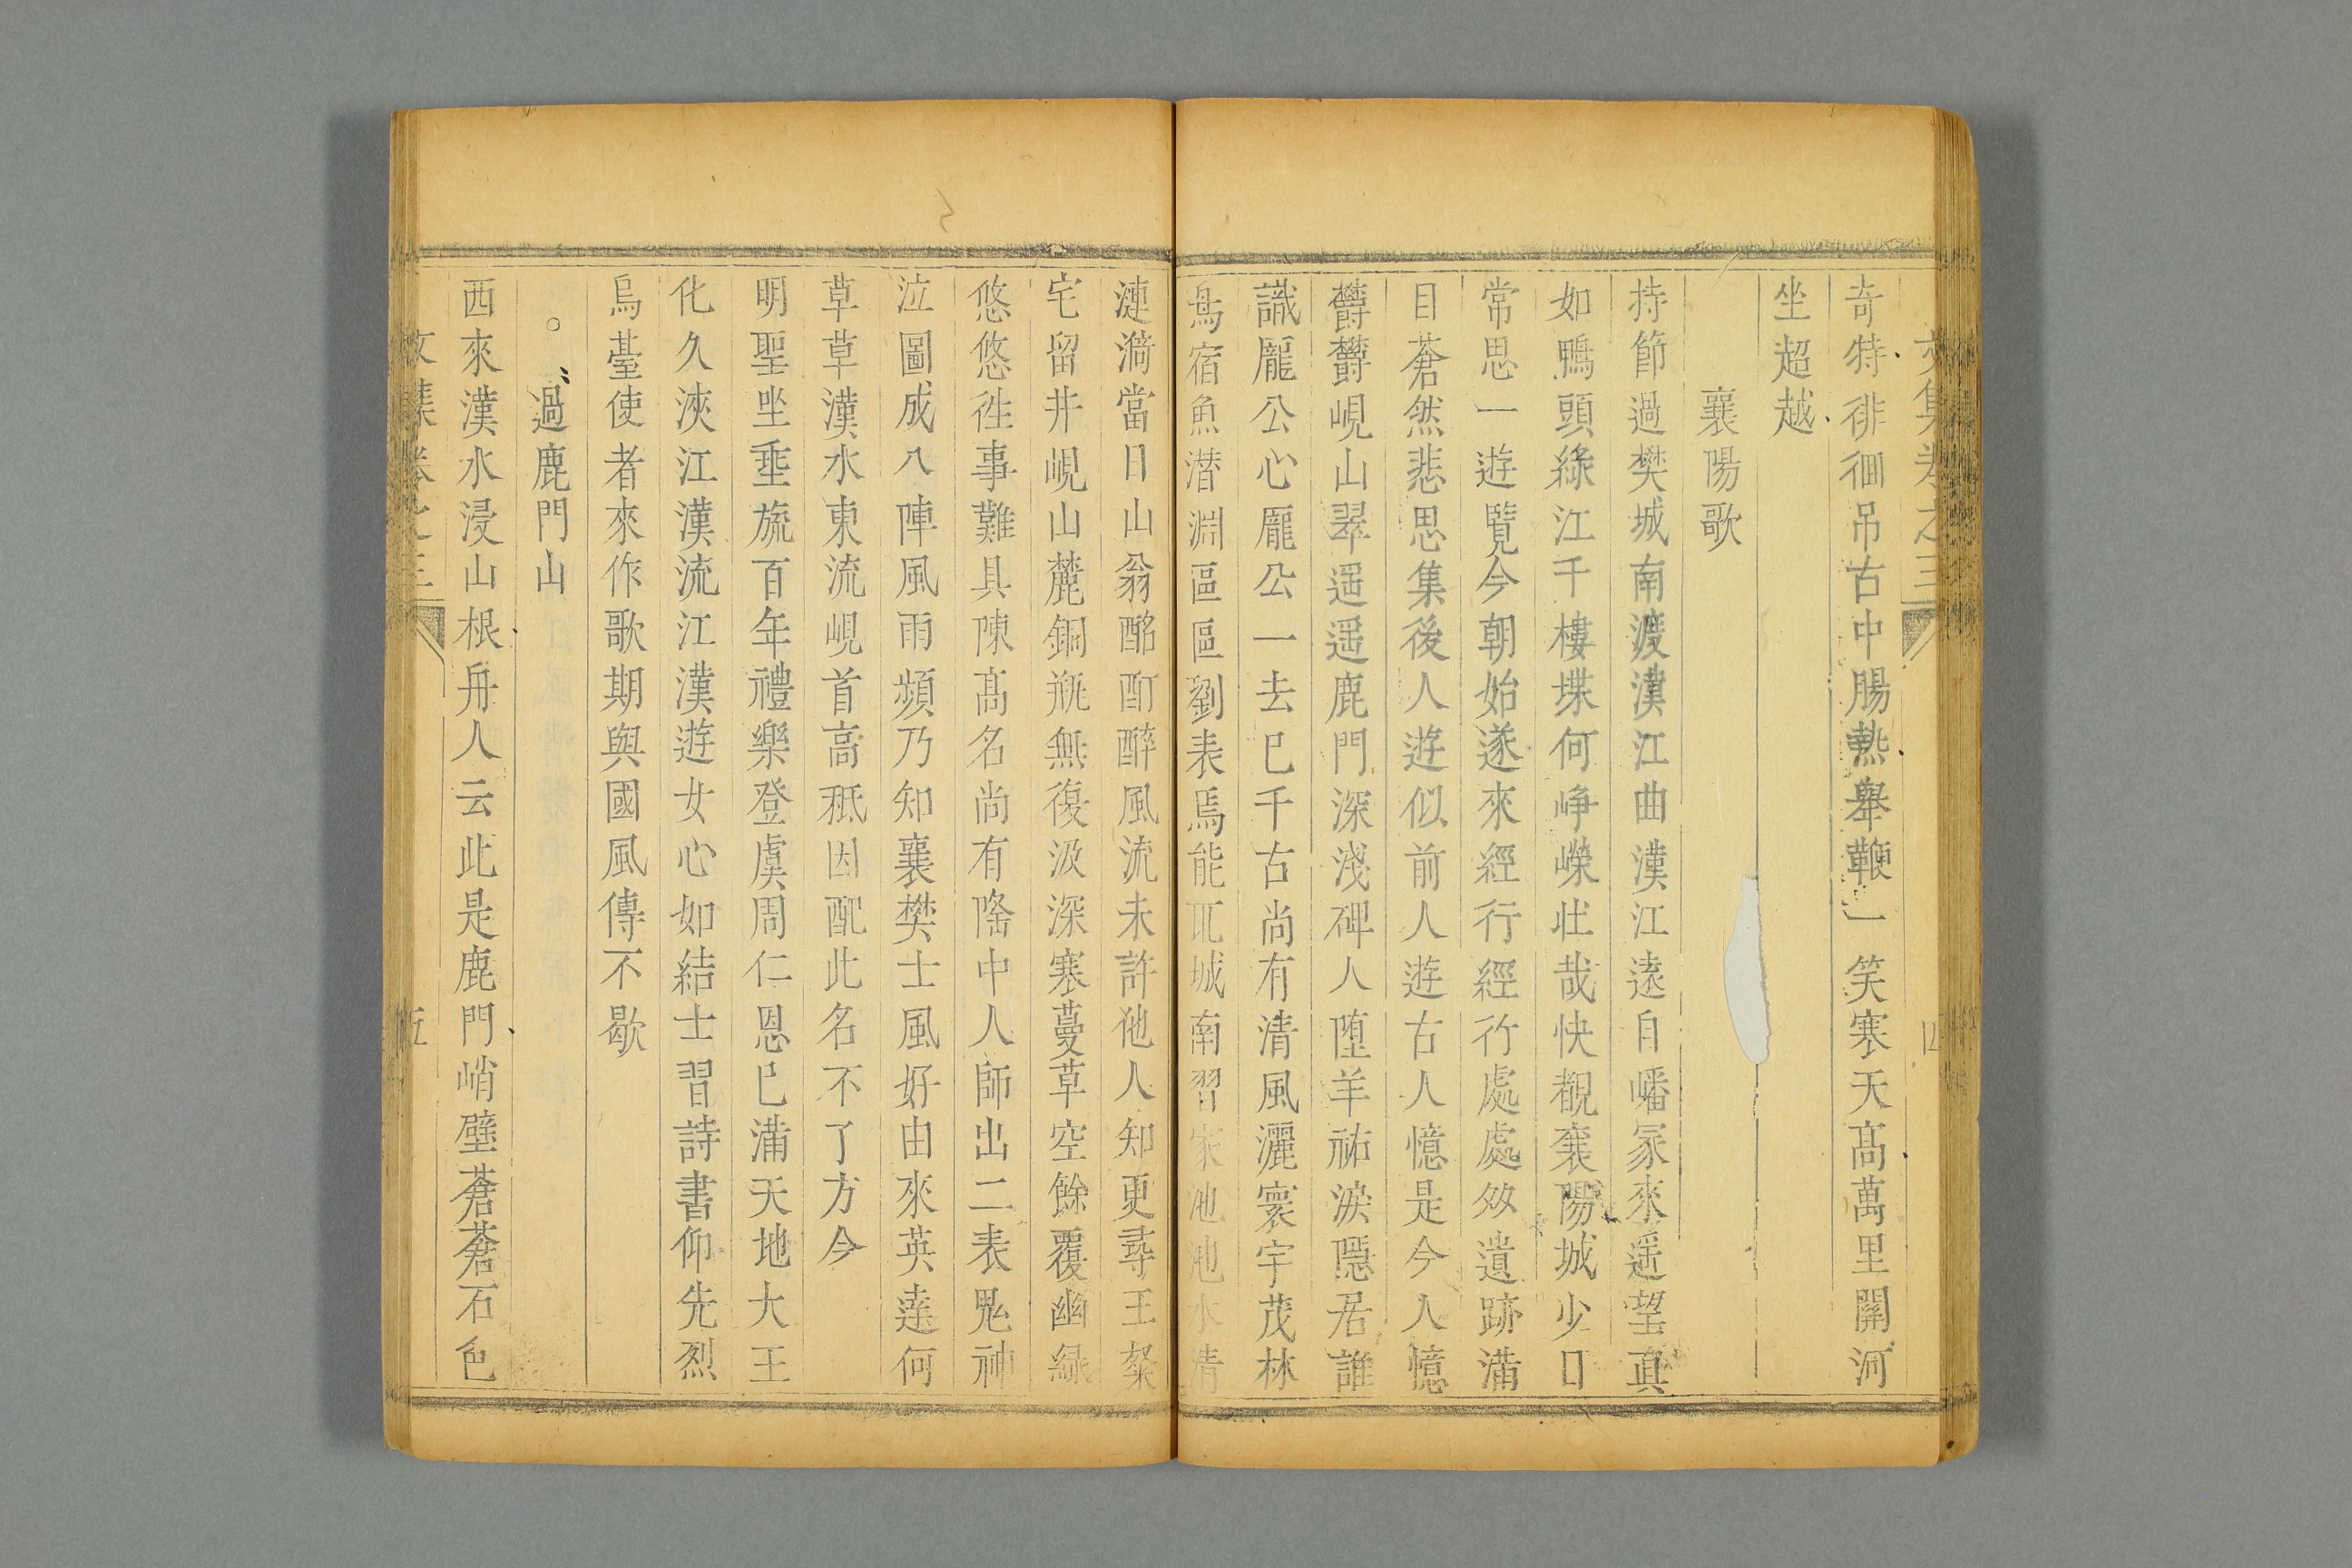 文集卷之三
四
奇特徘徊吊古中腸熱舉鞭一笑寒天髙萬里關河
坐超越
襄陽歌
持節過樊城南渡漢江曲漢江遠自嶓冡來遥望真
如鴨頭綠江千樓堞何崢嶸壯哉快覩襄陽城少日
常思一遊覧今朝始遂來經行經行處處效遺跡滿
目蒼然悲思集後人遊似前人遊古人憶是今人憶
欝欝峴山翠遥遥鹿門深淺碑人墮羊祜淚隠居誰
識龎公心龎公一去已千古尚有清風灑寰宇茂林
鳥宿魚潜淵區區劉表焉能耴城南習家池池水清
漣漪當日山翁酩酊醉風流未許他人知更尋王粲
宅留井峴山麓銅瓶無復汲深寒蔓草空餘覆幽緑
悠悠徃事難具陳髙名尚有隆中人師出二表鬼神
泣圖成八陣風雨頻乃知襄樊士風好由來英逹何
草草漢水東流峴首高秪因配此名不了方今
明聖坐垂旒百年禮樂登虞周仁恩已滿天地大王
化久浹江漢流江漢遊女心如結士習詩書仰先烈
烏䑓使者來作歌期與國風傳不歇
過鹿門山
西來漢水浸山根舟人云此是鹿門峭壁蒼蒼石色
文集卷之三
五